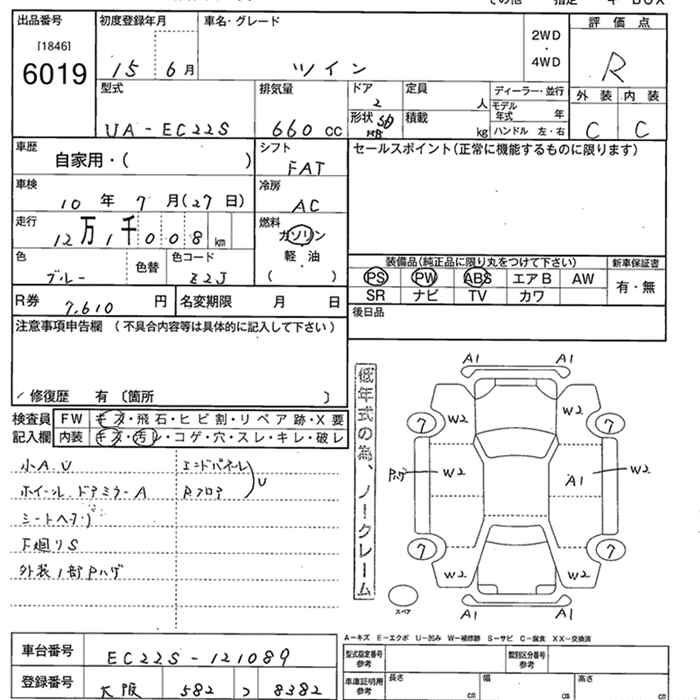 出品番号 初度登録年月 車名・グレード 評価点
[1846]
6019 15 6月 ツイン 2WD・4WD R
型式 排気量 ドア 定員 ディーラー・並行 外装 内装
2 人 モデル年式 年
UA-EC22S 660cc 形状 5D HB 積載 kg ハンドル 左・右 C C
車歴 シフト セールスポイント(正常に機能するものに限ります)
自家用・( ) FAT
車検 冷房
10年 7月(27日) AC
走行 燃料
12万1千008km ガソリン
軽油
色 色替 色コード ( ) 装備品(純正品に限り丸をつけて下さい) 新車保証書
ブルー Z2J PS PW ABS エアB AW 有・無
SR ナビ TV カワ
R券 7,610円 名変期限 月 日 後日品
注意事項申告欄 (不具合内容等は具体的に記入して下さい)
修復歴 有〔箇所 〕
検査員 FW キズ・飛石・ヒビ割・リペア跡・X要
記入欄 内装 キズ・汚レ・コゲ・穴・スレ・キレ・破レ
小A.U エンドパネル
ホイール.ドアミラーA Rフロア U
シートヘタリ
下廻りS
外装1部Pハゲ
低年式の為、ノークレーム
A1 A1
W2 W2
7 7
Pハゲ W2 A1 W2
7 7
W2 W2
スペア A1 A1
A-キズ E-エクボ U-凹み W-補修跡 S-サビ C-腐食 XX-交換済
車台番号 EC22S-121089 型式指定番号 参考 類別区分番号 参考
登録番号 大阪 582 フ 8382 車庫証明用 参考 長さ cm 幅 cm 高さ cm